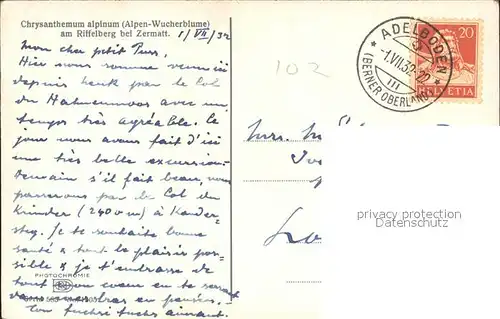 Chrysanthemum alpinum (Alpen-Wucherblume)
am Riffelberg bei Zermatt. 1/VII/32
Mon cher petit
Hier nous somme venu ici
depuis Lenk par le Col
du Hahnenmoos avec un
temps très agréable. Ce
jour nous avons fait d'ici
une très belle excursion.
Demain s'il fait beau, nous
passerons par le Col du
(2400 m) à Kander-
steg. Je te souhaite bonne
santé & tout le plaisir pos-
sible & je t'embrasse de
tout coeur en te
dans mes bras en pensées.
Ton aimant.
PHOTOCHROMIE
102
ADELBODEN
-1.VII.32-22
III
(BERNER OBERLAND)
20
HELVETIA
Mrs.
privacy protection
Datenschutz